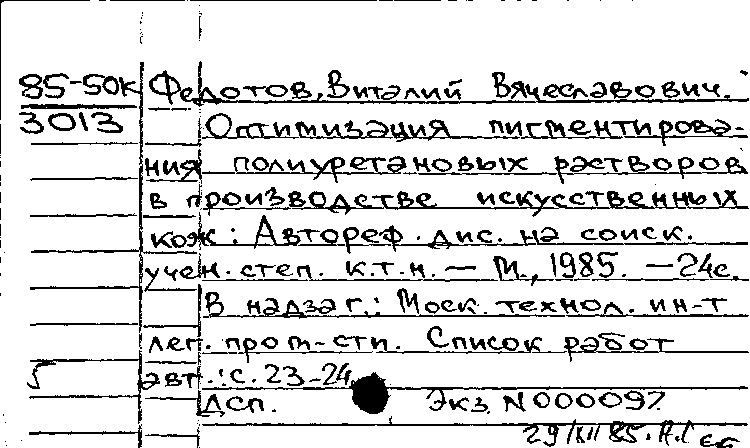 85-50к Федотов, Виталий Вячеславович.
3013 Оптимизация пигментирова-
ния полиуретановых растворов
в производстве искусственных
кож: Автореф. дис. на соиск.
учен. степ. к.т.н. — М., 1985. — 24с.
В надзаг.: Моск. технол. ин-т
лег. пром-сти. Список работ
5 авт.: с. 23-24
ДСП. Экз. N 000097
29/XII 85.